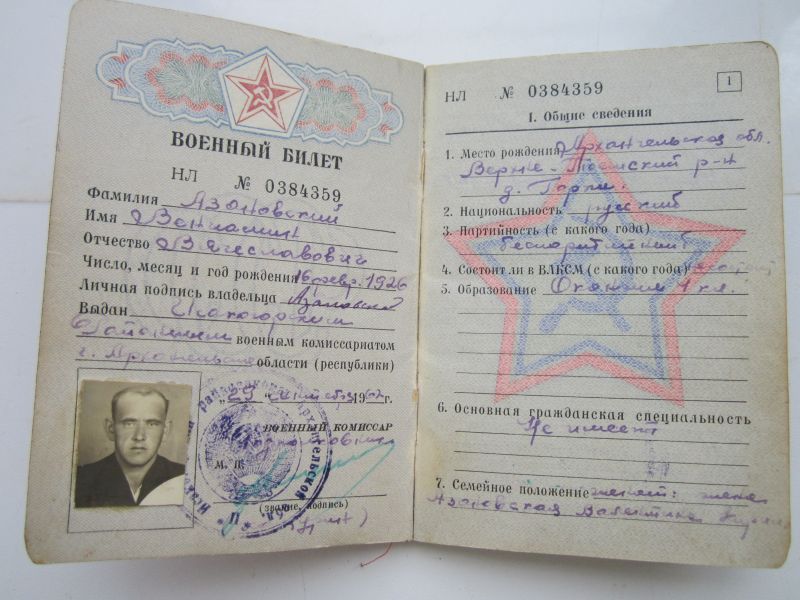 ВОЕННЫЙ БИЛЕТ
НЛ № 0384359
Фамилия Азановский
Имя Вениамин
Отчество Вячеславович
Число, месяц и год рождения 16 февр. 1926
Личная подпись владельца Азановский
Выдан Исакогорским
Районным военным комиссариатом
г. Архангельска области (республики)
"29" 1962 г.
ВОЕННЫЙ КОМИССАР
М. П.
(звание, подпись)
НЛ № 0384359
1
I. Общие сведения
1. Место рождения Архангельская обл.
Верхне-Тоемский р-н
д.
2. Национальность русский
3. Партийность (с какого года)
беспартийный
4. Состоял ли в ВЛКСМ (с какого года)
5. Образование Окончил 4 кл.
6. Основная гражданская специальность
Не имеет
7. Семейное положение женат: жена
Азановская Валентина